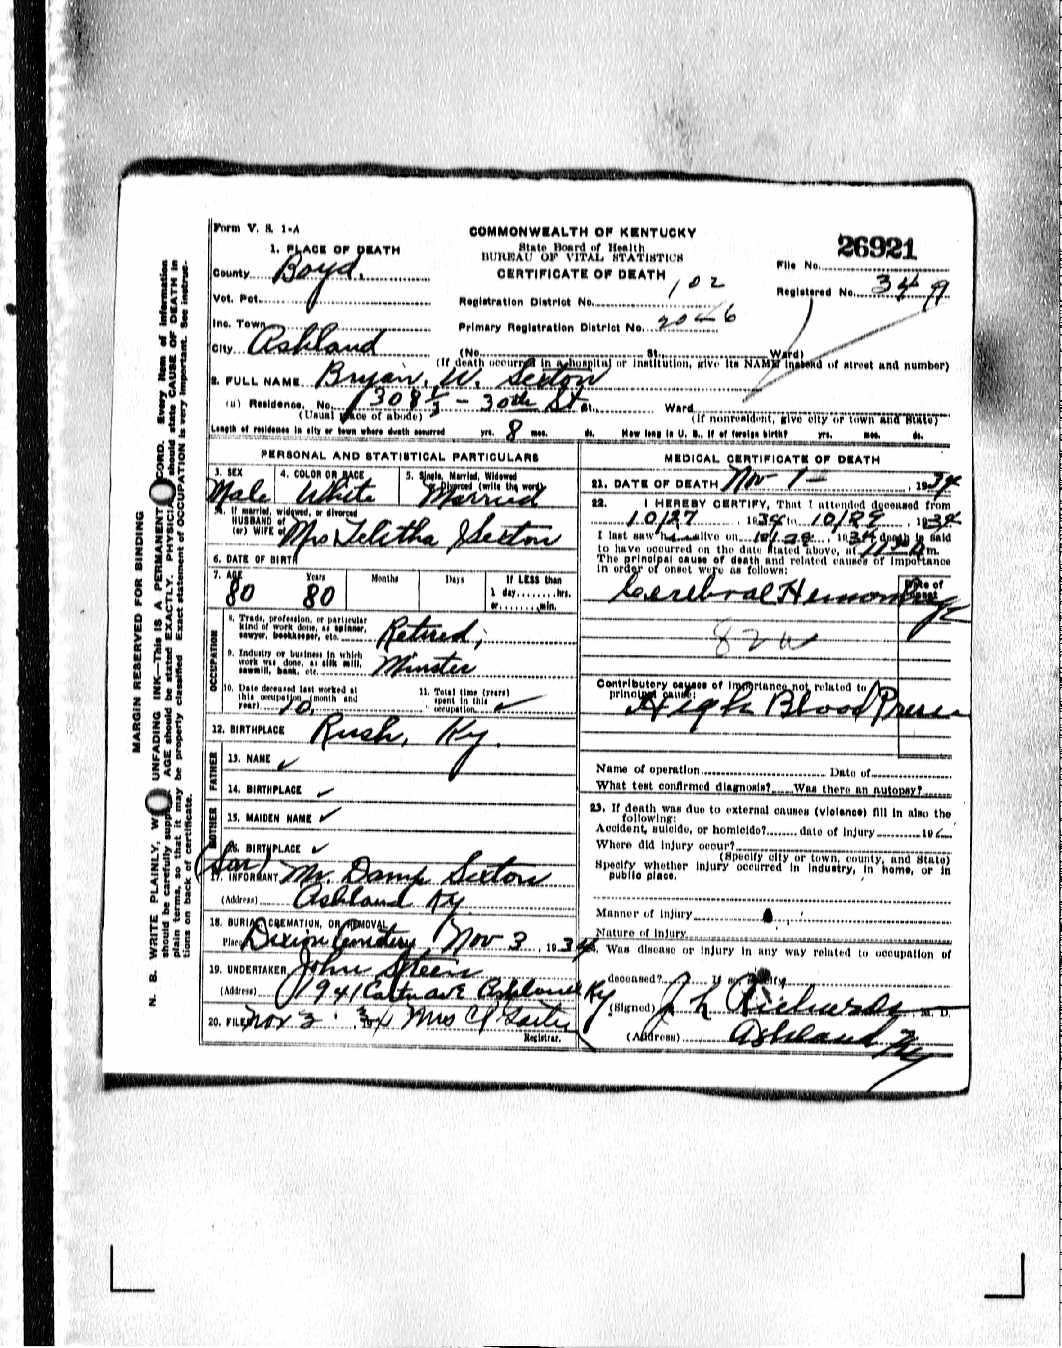 Form V. S. 1-A
COMMONWEALTH OF KENTUCKY
State Board of Health
BUREAU OF VITAL STATISTICS
CERTIFICATE OF DEATH
26921
File No.
Registered No. 349
1. PLACE OF DEATH
County Boyd.
Vot. Pct.
Inc. Town
City Ashland
Registration District No. 102
Primary Registration District No. 2046
(No. St. Ward)
(If death occurred in a hospital or institution, give its NAME instead of street and number)
2. FULL NAME Bryan. W. Sexton
(a) Residence. No. 1308 1/2 - 30th St. St. Ward
(Usual place of abode) (If nonresident, give city or town and State)
Length of residence in city or town where death occurred yrs. 8 mos. ds. How long in U. S., if of foreign birth? yrs. mos. ds.
PERSONAL AND STATISTICAL PARTICULARS
3. SEX
Male
4. COLOR OR RACE
White
5. Single, Married, Widowed or Divorced (write the word)
Married
5a. If married, widowed, or divorced
HUSBAND of
(or) WIFE of Mrs Telitha Sexton
6. DATE OF BIRTH
7. AGE Years Months Days If LESS than
80 80 1 day,........hrs.
or........min.
OCCUPATION
8. Trade, profession, or particular
kind of work done, as spinner,
sawyer, bookkeeper, etc. Retired,
9. Industry or business in which
work was done, as silk mill,
sawmill, bank, etc. Minster
10. Date deceased last worked at
this occupation (month and
year) 10.
11. Total time (years)
spent in this
occupation ✓
12. BIRTHPLACE Rush, Ky.
FATHER
13. NAME ✓
14. BIRTHPLACE ✓
MOTHER
15. MAIDEN NAME ✓
16. BIRTHPLACE ✓
(Son)
17. INFORMANT Mr. Damp Sexton
(Address) Ashland Ky.
18. BURIAL, CREMATION, OR REMOVAL
Place Dixion Cemetery, Nov 3, 1934
19. UNDERTAKER John Steen
(Address) 1941 Carter ave Ashland Ky
20. FILED Nov 3 34 Mrs C
Registrar.
MEDICAL CERTIFICATE OF DEATH
21. DATE OF DEATH Nov 1 - , 1934
22. I HEREBY CERTIFY, That I attended deceased from
10/27, 1934 to 10/29, 1934
I last saw h alive on 10/29, 1934 death is said
to have occurred on the date stated above, at m.
The principal cause of death and related causes of importance
in order of onset were as follows:
Date of onset
Cerebral Hemorrhage
82a
Contributory causes of importance not related to
principal cause:
High Blood Pressu
Name of operation Date of
What test confirmed diagnosis? Was there an autopsy?
23. If death was due to external causes (violence) fill in also the
following:
Accident, suicide, or homicide? date of injury 19
Where did injury occur?
(Specify city or town, county, and State)
Specify whether injury occurred in industry, in home, or in
public place.
Manner of injury
Nature of injury
24. Was disease or injury in any way related to occupation of
deceased? If so, specify
(Signed) J L Richards M. D.
(Address) Ashland Ky
MARGIN RESERVED FOR BINDING
N. B. WRITE PLAINLY, W UNFADING INK—THIS IS A PERMANENT CORD. Every item of information
should be carefully supp AGE should be stated EXACTLY. PHYSICIA should state CAUSE OF DEATH in
plain terms, so that it may be properly classified. Exact statement of OCCUPATION is very important. See instruc-
tions on back of certificate.